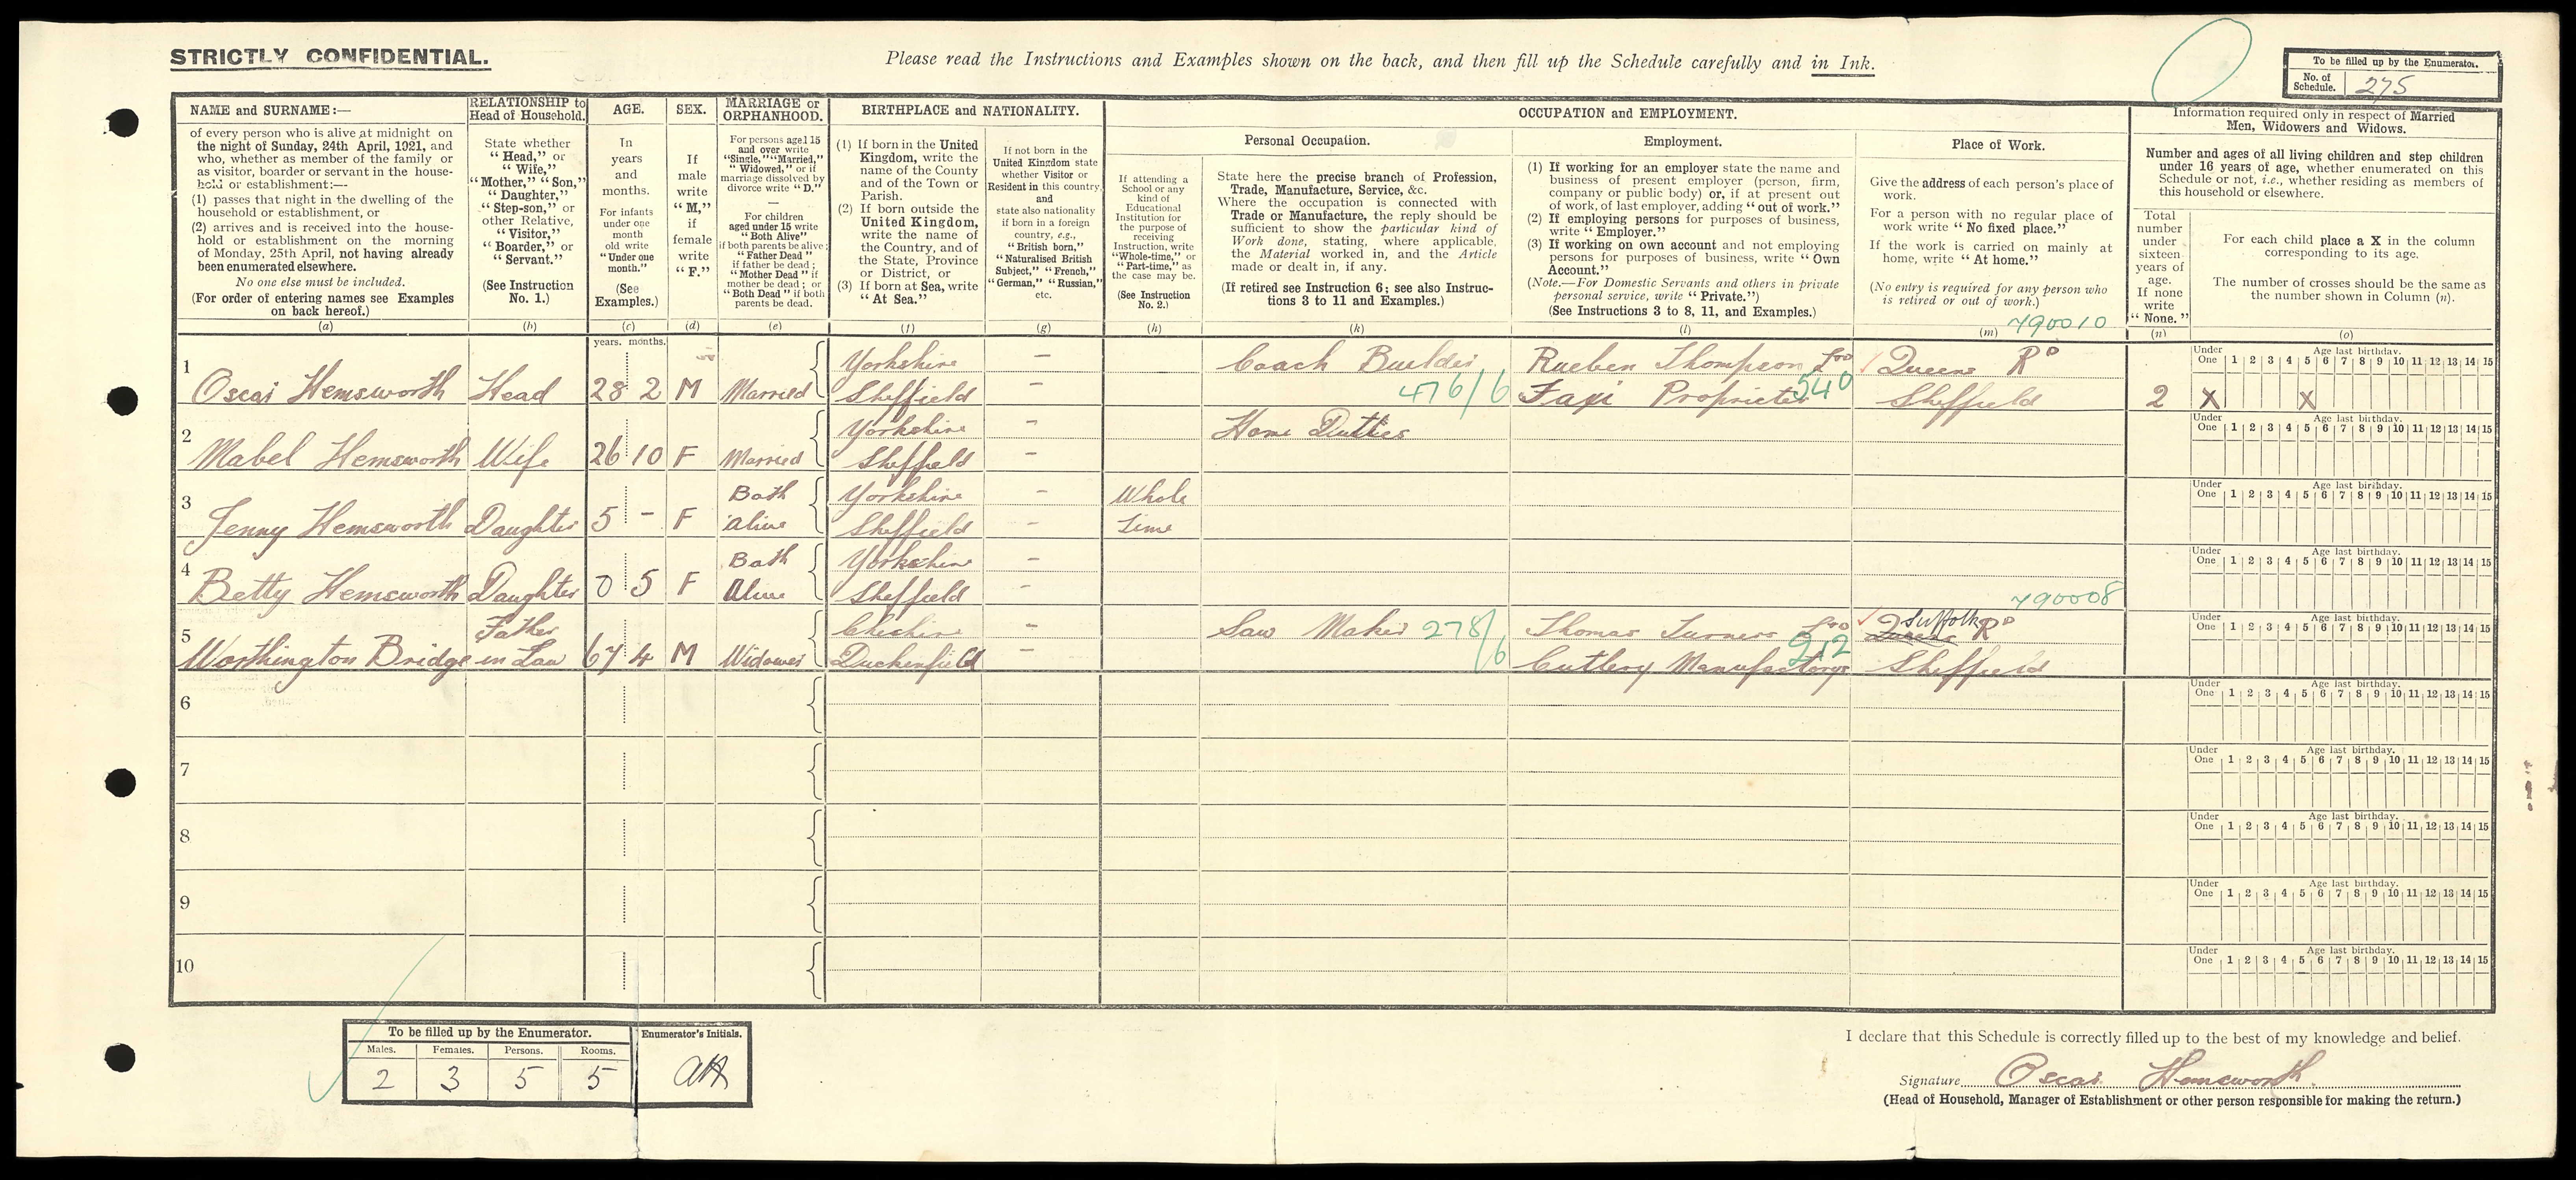 STRICTLY CONFIDENTIAL.
Please read the Instructions and Examples shown on the back, and then fill up the Schedule carefully and in Ink.
To be filled up by the Enumerator.
No. of Schedule. 275
NAME and SURNAME:—
of every person who is alive at midnight on
the night of Sunday, 24th April, 1921, and
who, whether as member of the family or
as visitor, boarder or servant in the house-
hold or establishment:—
(1) passes that night in the dwelling of the
household or establishment, or
(2) arrives and is received into the house-
hold or establishment on the morning
of Monday, 25th April, not having already
been enumerated elsewhere.
No one else must be included.
(For order of entering names see Examples
on back hereof.)
(a)
RELATIONSHIP to
Head of Household.
State whether
"Head," or
"Wife,"
"Mother," "Son,"
"Daughter,"
"Step-son," or
other Relative,
"Visitor,"
"Boarder," or
"Servant."
(See Instruction
No. 1.)
(b)
AGE.
In
years
and
months.
For infants
under one
month
old write
"Under one
month."
(See
Examples.)
(c)
SEX.
If
male
write
"M,"
if
female
write
"F."
(d)
MARRIAGE or
ORPHANHOOD.
For persons aged 15
and over write
"Single," "Married,"
"Widowed," or if
marriage dissolved by
divorce write "D."
—
For children
aged under 15 write
"Both Alive"
if both parents be alive;
"Father Dead"
if father be dead;
"Mother Dead" if
mother be dead; or
"Both Dead" if both
parents be dead.
(e)
BIRTHPLACE and NATIONALITY.
(1) If born in the United
Kingdom, write the
name of the County
and of the Town or
Parish.
(2) If born outside the
United Kingdom,
write the name of
the Country, and of
the State, Province
or District, or
(3) If born at Sea, write
"At Sea."
(f)
If not born in the
United Kingdom state
whether Visitor or
Resident in this country,
and
state also nationality
if born in a foreign
country, e.g.,
"British born,"
"Naturalised British
Subject," "French,"
"German," "Russian,"
etc.
(g)
OCCUPATION and EMPLOYMENT.
If attending a
School or any
kind of
Educational
Institution for
the purpose of
receiving
Instruction, write
"Whole-time," or
"Part-time," as
the case may be.
(See Instruction
No. 2.)
(h)
Personal Occupation.
State here the precise branch of Profession,
Trade, Manufacture, Service, &c.
Where the occupation is connected with
Trade or Manufacture, the reply should be
sufficient to show the particular kind of
Work done, stating, where applicable,
the Material worked in, and the Article
made or dealt in, if any.
(If retired see Instruction 6; see also Instruc-
tions 3 to 11 and Examples.)
(k)
Employment.
(1) If working for an employer state the name and
business of present employer (person, firm,
company or public body) or, if at present out
of work, of last employer, adding "out of work."
(2) If employing persons for purposes of business,
write "Employer."
(3) If working on own account and not employing
persons for purposes of business, write "Own
Account."
(Note.—For Domestic Servants and others in private
personal service, write "Private.")
(See Instructions 3 to 8, 11, and Examples.)
(l)
Place of Work.
Give the address of each person's place of
work.
For a person with no regular place of
work write "No fixed place."
If the work is carried on mainly at
home, write "At home."
(No entry is required for any person who
is retired or out of work.)
(m) 790010
Information required only in respect of Married
Men, Widowers and Widows.
Number and ages of all living children and step children
under 16 years of age, whether enumerated on this
Schedule or not, i.e., whether residing as members of
this household or elsewhere.
Total
number
under
sixteen
years of
age.
If none
write
"None."
(n)
For each child place a X in the column
corresponding to its age.
The number of crosses should be the same as
the number shown in Column (n).
(o)
years. months.
1 Oscar Hemsworth Head 28 2 M Married Yorkshire Sheffield — — Coach Builder 476/6 Rueben Thompson Ltd Taxi Proprietor 540 Queens Rd Sheffield 2 X X
Under One Age last birthday. 1 2 3 4 5 6 7 8 9 10 11 12 13 14 15
2 Mabel Hemsworth Wife 26 10 F Married Yorkshire Sheffield — — Home Duties
Under One Age last birthday. 1 2 3 4 5 6 7 8 9 10 11 12 13 14 15
3 Jenny Hemsworth Daughter 5 - F Both alive Yorkshire Sheffield — — Whole Time
Under One Age last birthday. 1 2 3 4 5 6 7 8 9 10 11 12 13 14 15
4 Betty Hemsworth Daughter 0 5 F Both Alive Yorkshire Sheffield — —
Under One Age last birthday. 1 2 3 4 5 6 7 8 9 10 11 12 13 14 15
790008
5 Worthington Bridge Father in Law 67 4 M Widower Cheshire Duckenfield — — Saw Maker 278/6 Thomas Turners Ltd Cutlery Manufactory 212 Queens Suffolk Rd Sheffield
Under One Age last birthday. 1 2 3 4 5 6 7 8 9 10 11 12 13 14 15
6
Under One Age last birthday. 1 2 3 4 5 6 7 8 9 10 11 12 13 14 15
7
Under One Age last birthday. 1 2 3 4 5 6 7 8 9 10 11 12 13 14 15
8
Under One Age last birthday. 1 2 3 4 5 6 7 8 9 10 11 12 13 14 15
9
Under One Age last birthday. 1 2 3 4 5 6 7 8 9 10 11 12 13 14 15
10
Under One Age last birthday. 1 2 3 4 5 6 7 8 9 10 11 12 13 14 15
To be filled up by the Enumerator.
Males. Females. Persons. Rooms.
2 3 5 5
Enumerator's Initials.
I declare that this Schedule is correctly filled up to the best of my knowledge and belief.
Signature Oscar Hemsworth
(Head of Household, Manager of Establishment or other person responsible for making the return.)